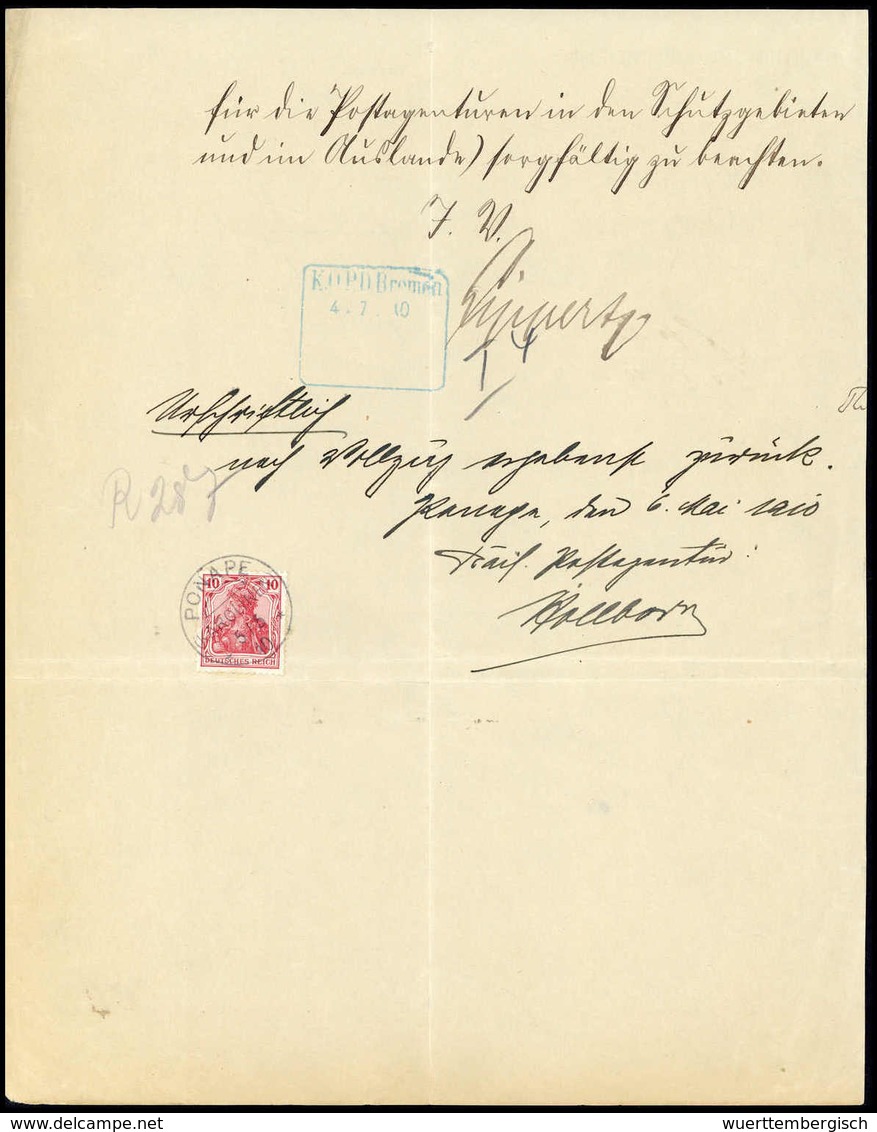 für die Postagenturen in den Schutzgebieten
und im Auslande) sorgfältig zu beachten.
J. V.
K.O.P.D. Bremen
4. 7. 10
14
Urschriftlich
nach Vollzug ergebenst zurück.
Ponape, den 6. Mai 1910
Kais. Postagentur:
Kollborn
R 287
PONAPE
10 10
DEUTSCHES REICH
delcampe.net
wuerttembergisch